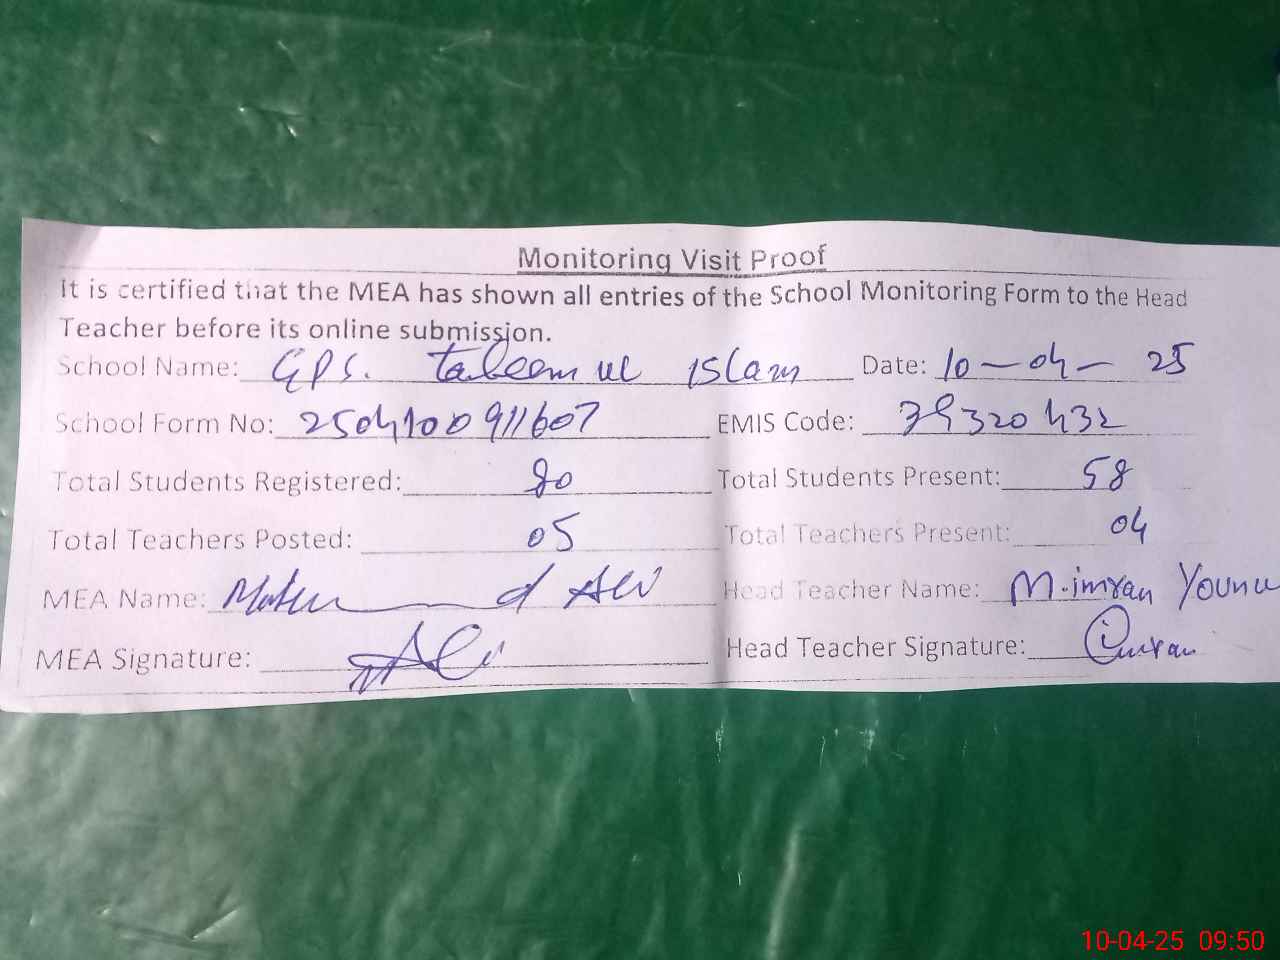 Monitoring Visit Proof
It is certified that the MEA has shown all entries of the School Monitoring Form to the Head
Teacher before its online submission.
School Name: GPS. taleem ul islam Date: 10-04-25
School Form No: 2504100911607 EMIS Code: 39320432
Total Students Registered: 80 Total Students Present: 58
Total Teachers Posted: 05 Total Teachers Present: 04
MEA Name: Ali Head Teacher Name: M.imran
MEA Signature: Head Teacher Signature: imran
10-04-25 09:50